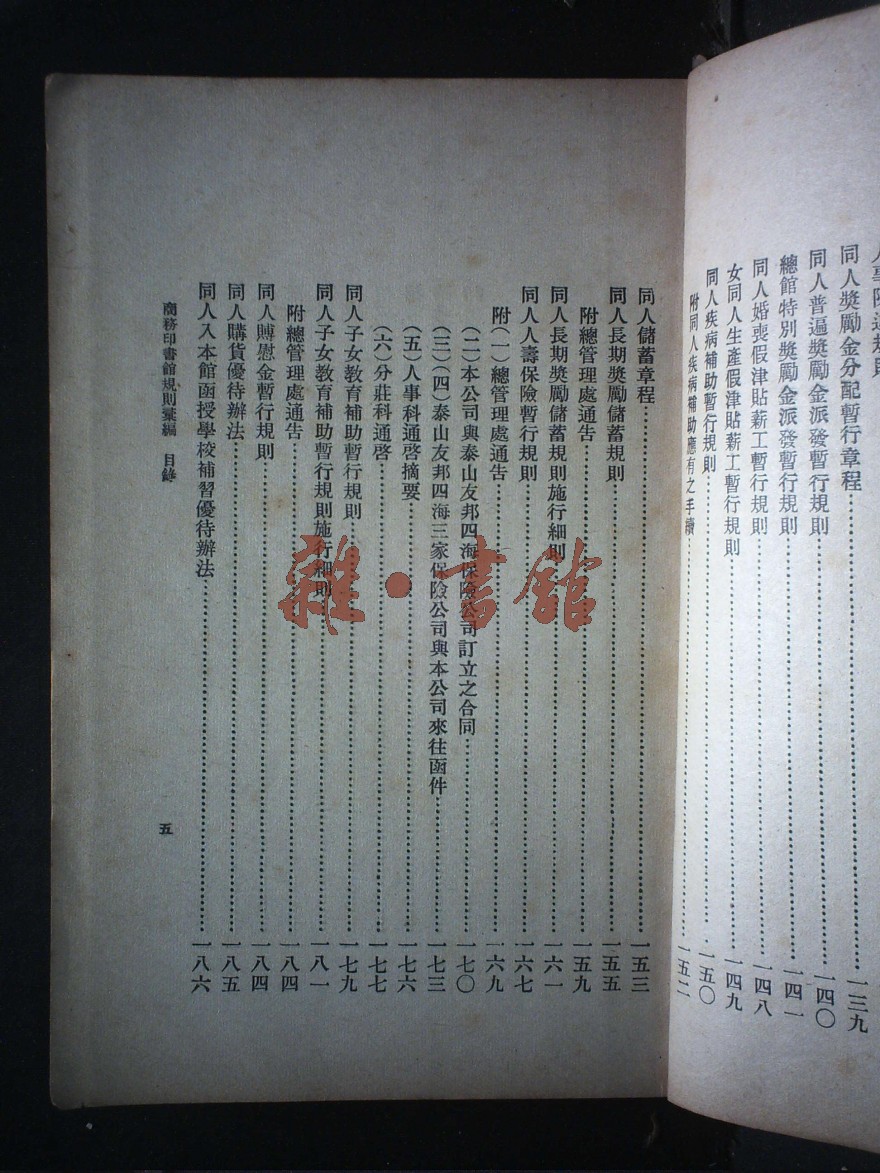 人事
規則
同人獎勵金分配暫行章程……一三九
同人普遍獎勵金派發暫行規則……一四〇
總館特別獎勵金派發暫行規則……一四一
同人婚喪假津貼薪工暫行規則……一四八
女同人生產假津貼薪工暫行規則……一四九
同人疾病補助暫行規則……一五〇
附同人疾病補助應有之手續……一五二
同人儲蓄章程……一五三
同人長期獎勵儲蓄規則……一五五
附總管理處通告……一五九
同人長期獎勵儲蓄規則施行細則……一六一
同人人壽保險暫行規則……一六七
附(一)總管理處通告……一六九
(二)本公司與泰山友邦四海保險公司訂立之合同……一七〇
(三)(四)泰山友邦四海三家保險公司與本公司來往函件……一七三
(五)人事科通啓摘要……一七六
(六)分莊科通啓……一七七
同人子女教育補助暫行規則……一七九
同人子女教育補助暫行規則施行細則……一八一
附總管理處通告……一八四
同人賻慰金暫行規則……一八四
同人購貨優待辦法……一八五
同人入本館函授學校補習優待辦法……一八六
商務印書館規則彙編 目錄
五
雜·書館